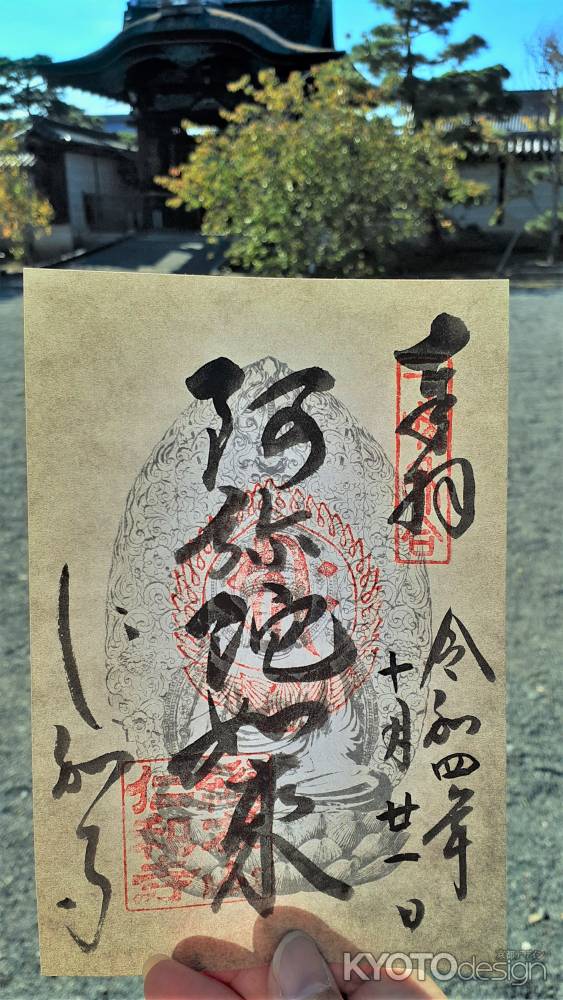 奉拝
令和四年
十月廿一日
阿弥陀如来
仁和寺
KYOTOdesign